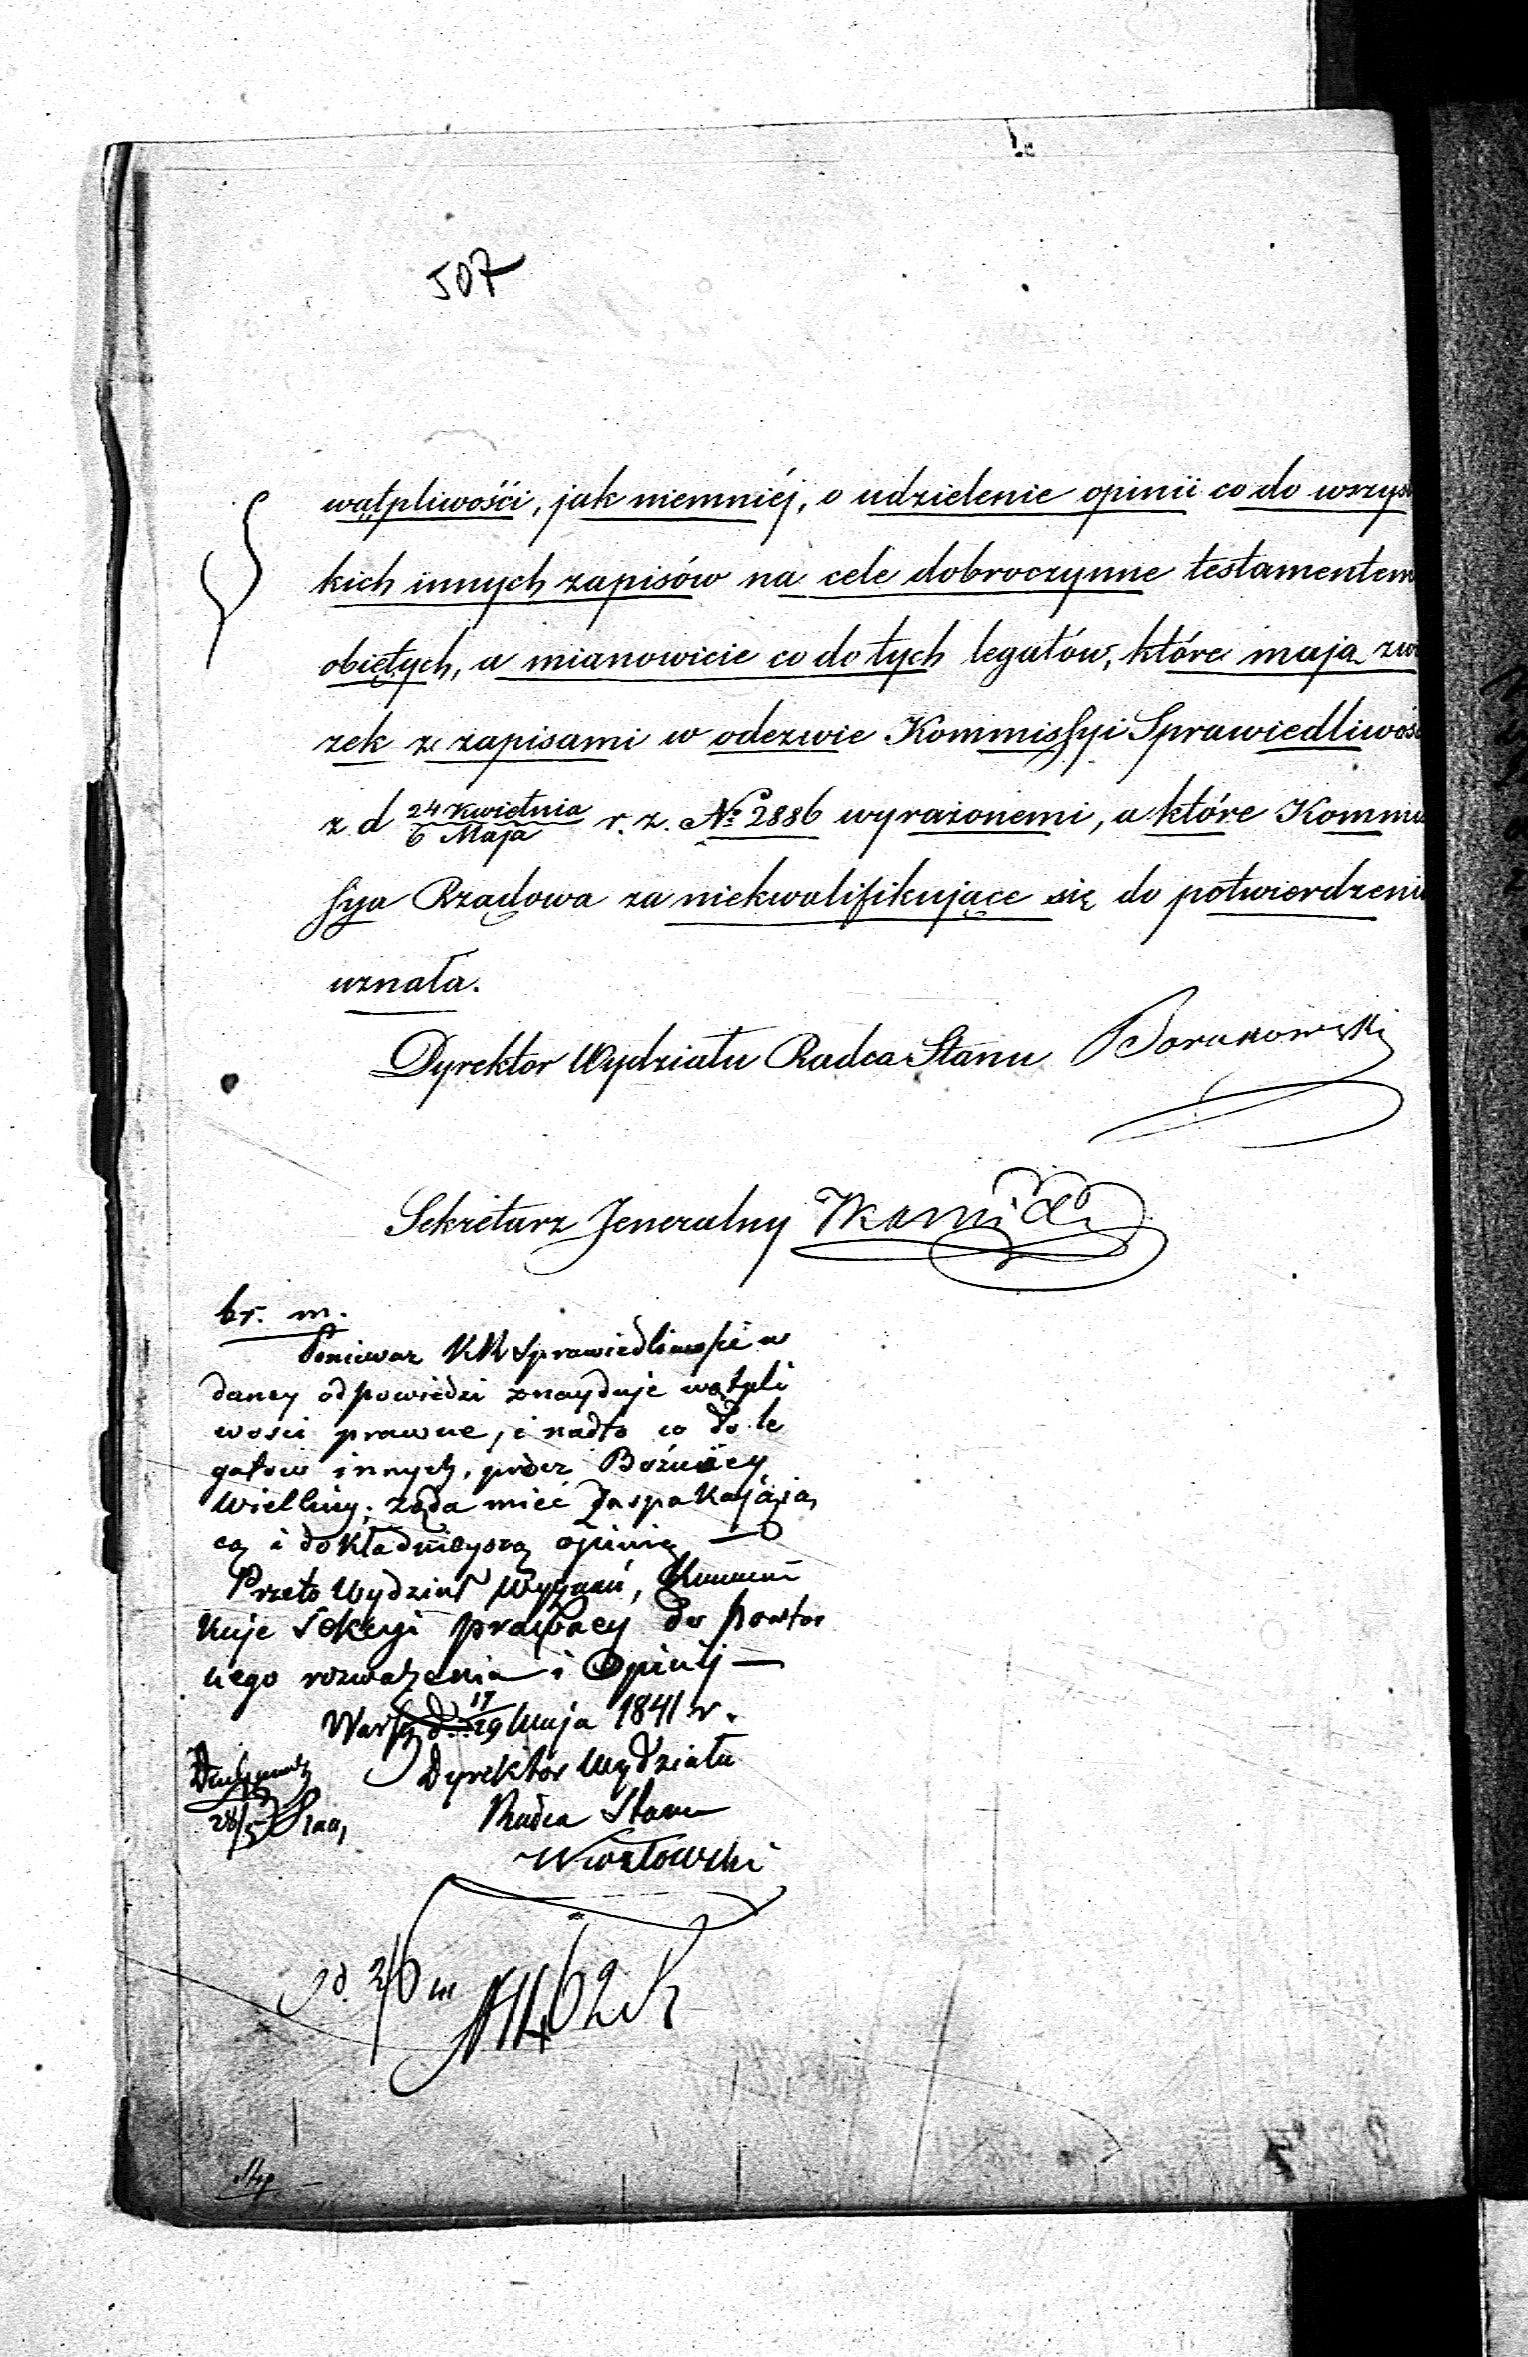 507
wątpliwośći, jak niemniéj, o udzielenie opinii co do wszys
kich innych zapisów na cele dobroczynne testamentem
objętych, a mianowicie co do tych legatów, które mają zwi
zek z zapisami w odezwie Kommissyi Sprawiedliwośc
z d 24 Kwietnia / 6 Maja r. z. № 2886 wyrażonemi, a które Kommi
ssya Rządowa za niekwalifikujące się do potwierdzenia
uznała.
Dyrektor Wydziału Radca Stanu
Sekretarz Jeneralny
br. m.
Ponieważ KR Sprawiedliwości w
daney odpowiedzi znayduje wątpli
wości prawne, i nadto co do le
gatów innych, prócz Bożnicy
Wielkiey, żąda mieć
cą i dokładnieyszą opinię —
Przeto Wydział Wyznań,
kuje Sekcyi prawney do powtor
nego rozważenia i Opinij —
Warsz d. 17/29 Maja 1841 r.
Dyrektor Wydziału
28/5
Radca Stanu
2/6